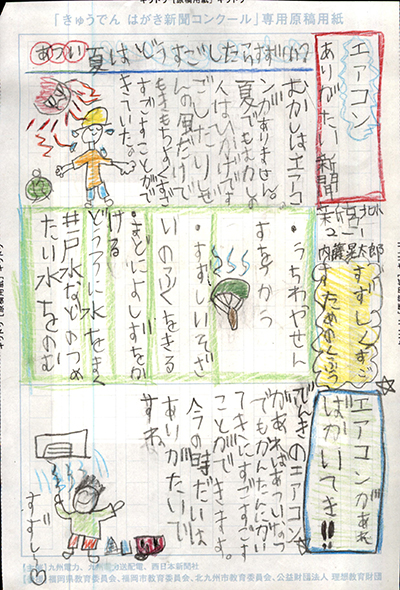 「きゅうでん はがき新聞コンクール」専用原稿用紙
エアコン
ありがたい新聞
内藤晃太郎
あつい夏はどうすごしたらいい?
むかしはエアコ
ンがありません。
夏でもはかしの
人はひかげです
ごしたりせ
んの風だけで
きもちよくすず
すごすことがで
きていた。
すずしくすご
すためのくふう
・うちわやせん
すをつかう
・すずしいそざ
いのふくをきる
・まどによしずをか
ける
どうろに水をまく
井戸水などのつめ
たい水をのむ
エアコンがあれ
ばかいてき!!
でんきのエアコン
があればあつい夏
でもかんたんにかい
てきにすごすこ
とができます。
今の時だいは
ありがたいで
すね
すずしい
【主催】九州電力、九州電力送配電、西日本新聞社
【後援】福岡県教育委員会、福岡市教育委員会、北九州市教育委員会、公益財団法人 理想教育財団